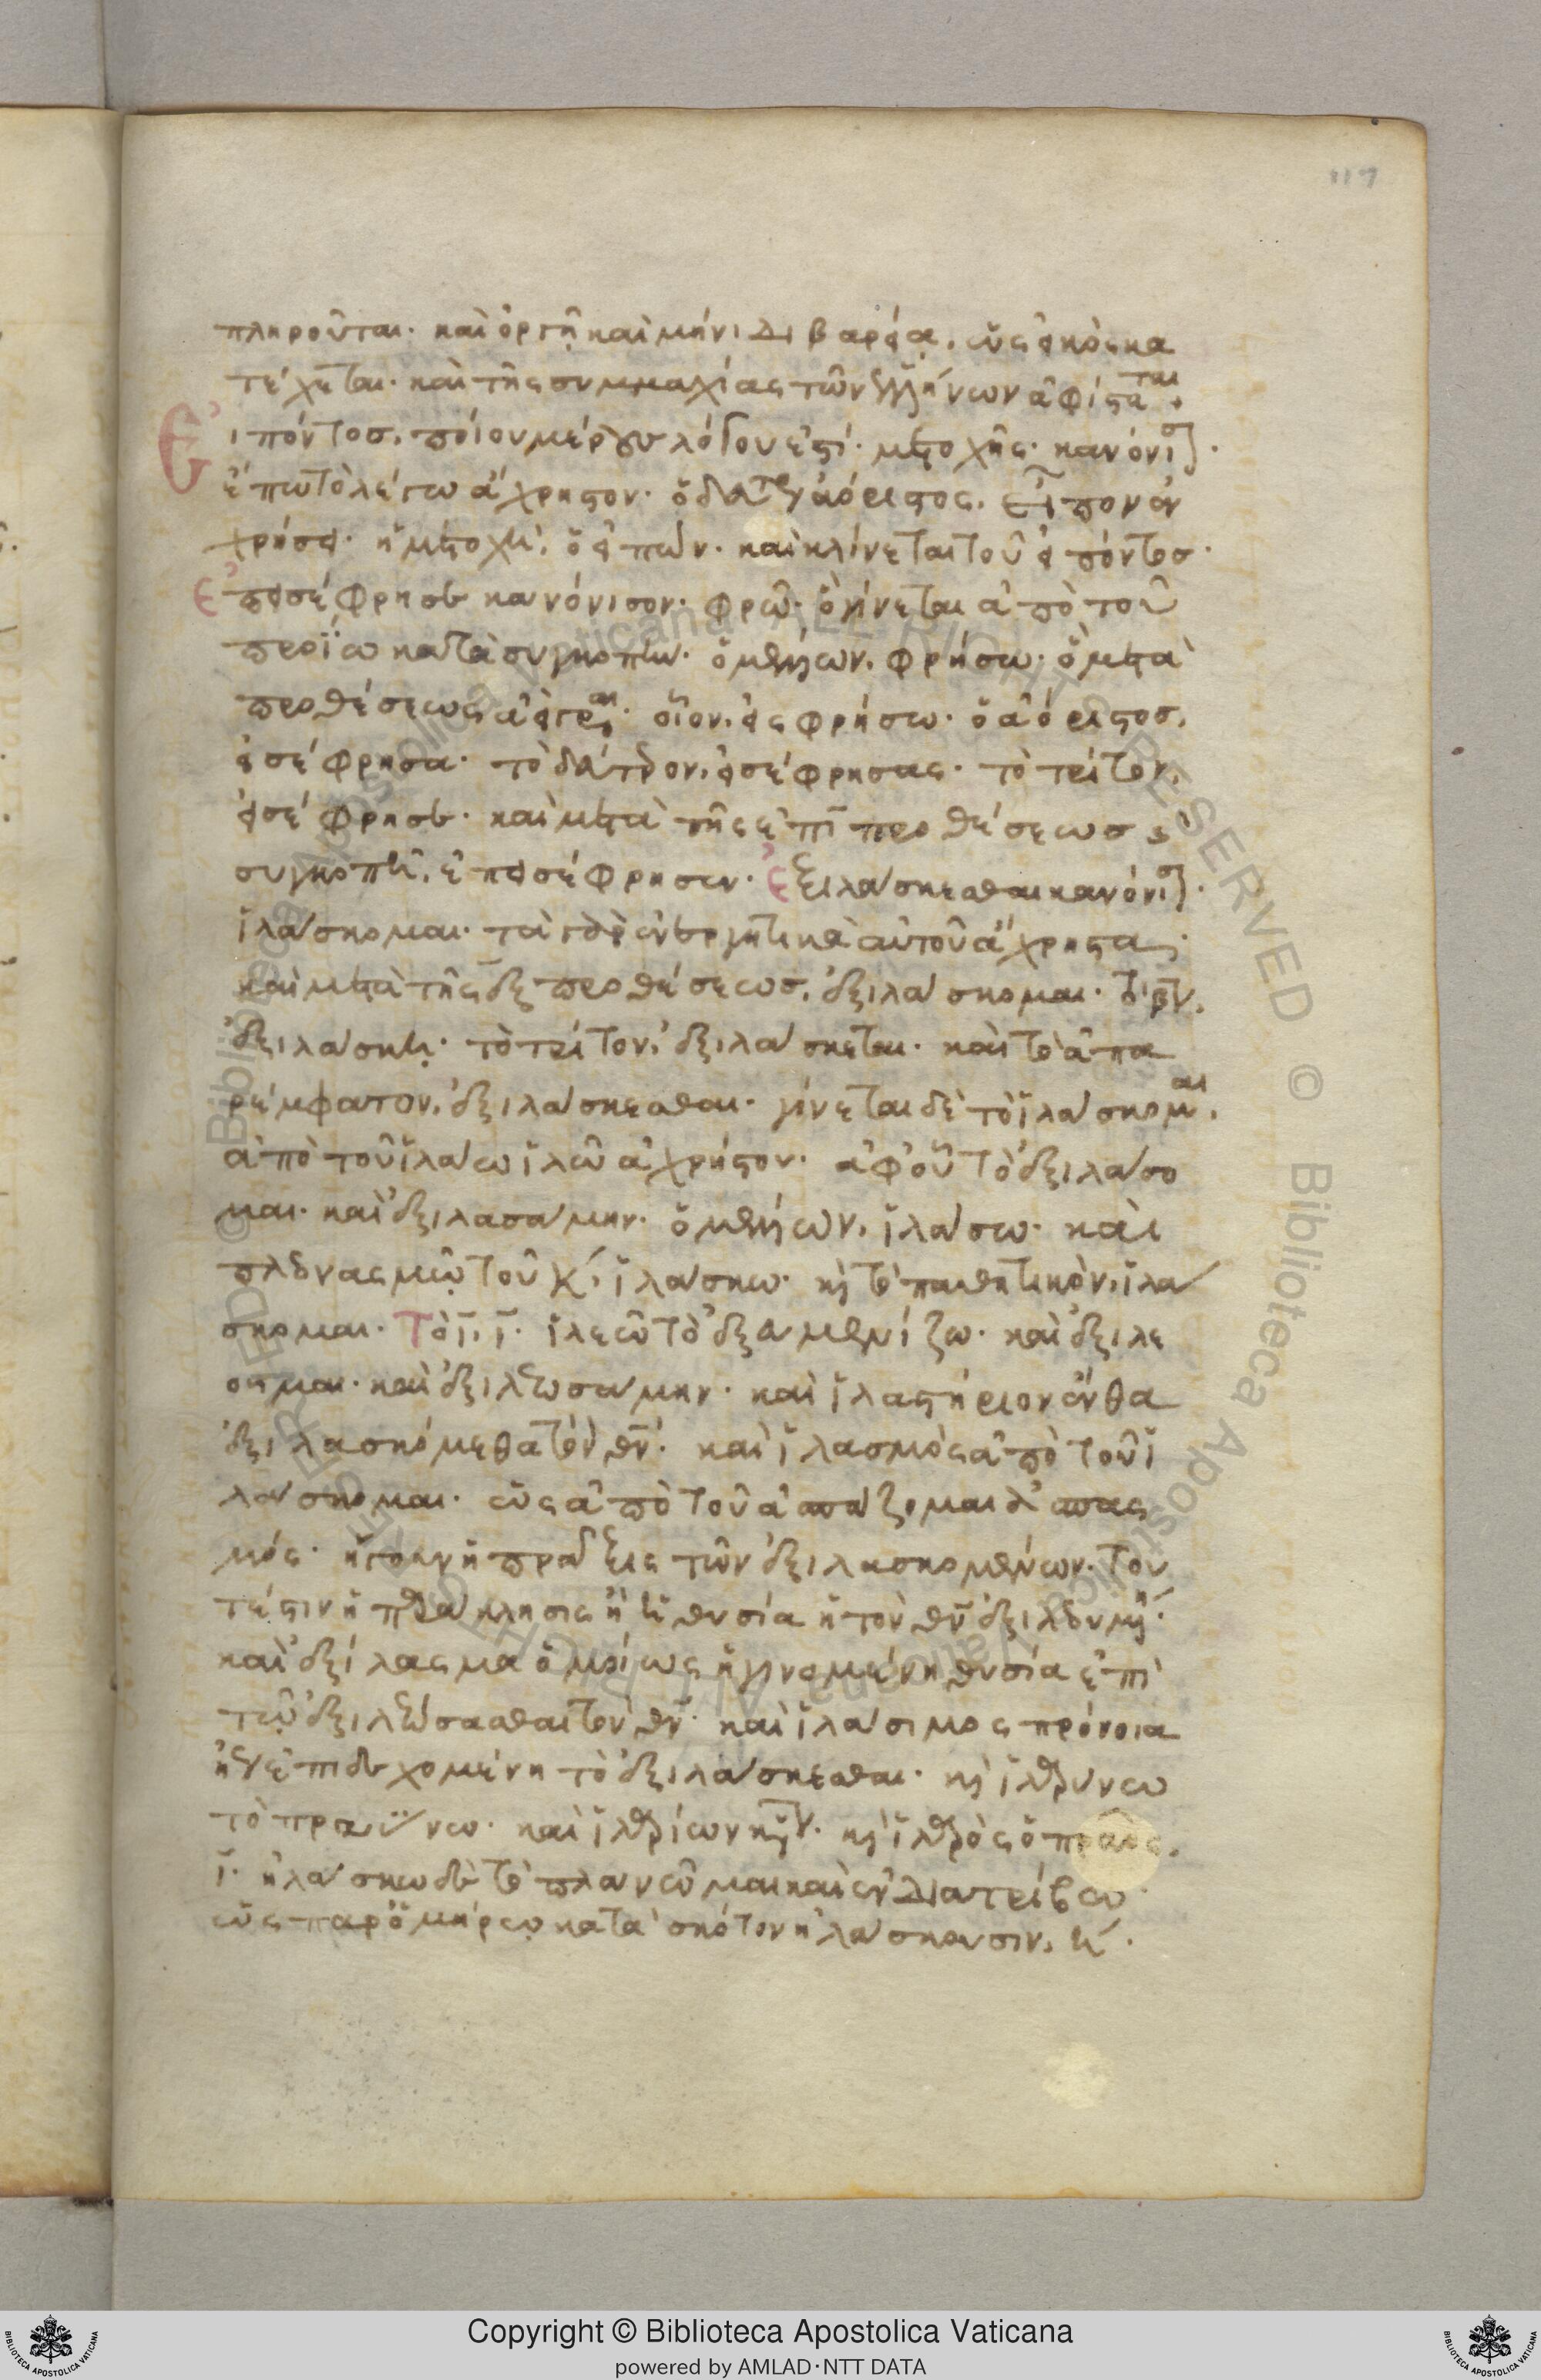 117
πληροῦται· καὶ ὀργῇ καὶ μήνιδι βαρείᾳ, ὡς εἰκὸς κα
τέχεται· καὶ τῆς συμμαχίας τῶν ἑλλήνων ἀφίσταται·
Εἰπόντος, ποίου μέρους λόγου ἐστί· μετοχῆς· κανόνισον·
ἔπω τὸ λέγω ἄχρηστον· ὁ δεύτερος ἀόριστος, εἶπον ἐν
χρήσει· ἡ μετοχὴ, ὁ εἰπών· καὶ κλίνεται τοῦ εἰπόντος·
ἐπεισέφρησε κανόνισον· φρῶ· ὃ γίνεται ἀπὸ τοῦ
προΐω κατὰ συγκοπήν· ὁ μέλλων, φρήσω· ὃ μετὰ
προθέσεως εὑρίσκεται· οἷον, εἰσφρήσω· ὁ ἀόριστος,
εἰσέφρησα· τὸ δεύτερον, εἰσέφρησας· τὸ τρίτον,
εἰσέφρησε· καὶ μετὰ τῆς ἐπὶ προθέσεως καὶ
συγκοπῇ, ἐπεισέφρησεν· ἐξιλάσκεσθαι κανόνισον·
ἱλάσκομαι· τὰ γὰρ ἐνεργητικὰ αὐτοῦ ἄχρηστα·
καὶ μετὰ τῆς ἐξ προθέσεως, ἐξιλάσκομαι· τὸ βον,
ἐξιλάσκῃ· τὸ τρίτον, ἐξιλάσκεται· καὶ τὸ ἀπα
ρέμφατον, ἐξιλάσκεσθαι· γίνεται δὲ τὸ ἱλάσκομαι,
ἀπὸ τοῦ ἱλάω ἱλῶ ἀχρήστου· ἀφ' οὗ τὸ ἐξιλάσο
μαι· καὶ ἐξιλασάμην· ὁ μέλλων, ἱλάσω· καὶ
πλεονασμῷ τοῦ κ, ἱλάσκω· καὶ τὸ παθητικὸν, ἱλά
σκομαι· Τὸ ϊ, ι· ἱλεῶ τὸ ἐξευμενίζω· καὶ ἐξιλε
οῦμαι· καὶ ἐξιλεωσάμην· καὶ ἱλαστήριον ἔνθα
ἐξιλασκόμεθα τὸν θν· καὶ ἱλασμὸς ἀπὸ τοῦ ἱ
λάσκομαι· ὡς ἀπὸ τοῦ ἀσπάζομαι ἀσπασ
μός· ἤγουν ἡ πρᾶξις τῶν ἐξιλασκομένων· του
τέστιν ἡ παράκλησις ἢ ἡ θυσία ἡ τὸν θν ἐξιλεουμένη·
καὶ ἐξίλασμα ὁμοίως ἡ γινομένη θυσία ἐπὶ
τῷ ἐξιλεώσασθαι τὸν θν· καὶ ἱλάσιμος πρόνοια
ἡ ἐπιδεχομένη τὸ ἐξιλάσκεσθαι· καὶ ἱλαρύνω
τὸ πραΰνω· καὶ ἱλαρίων κύριον· καὶ ἱλαρὸς ὁ πρᾶος,
ϊ· ἠλάσκω δὲ τὸ πλανῶμαι καὶ ἐνδιατρίβω·
ὡς παρ' ὁμήρῳ κατὰ σκότον ἠλάσκουσιν, η·
Copyright © Biblioteca Apostolica Vaticana
powered by AMLAD·NTT DATA